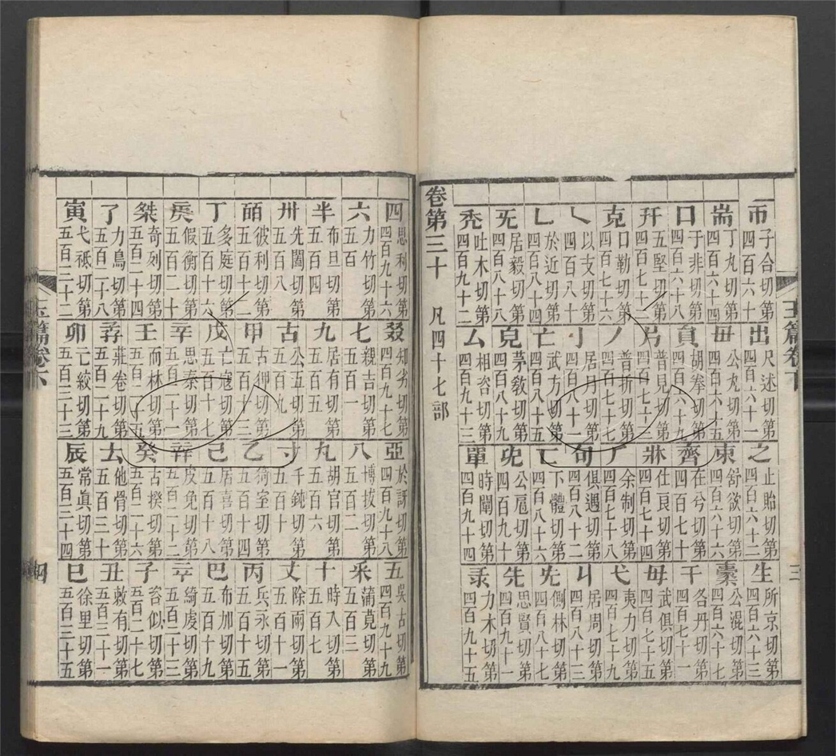 玉篇卷下
三
帀子合切第四百六十
出尺述切第四百六十一
之止貽切第四百六十二
生所京切第四百六十三
耑丁丸切第四百六十四
毌公丸切第四百六十五
束舒欲切第四百六十六
橐公混切第四百六十七
囗于非切第四百六十八
員胡拳切第四百六十九
齊在兮切第四百七十
干各丹切第四百七十一
幵五堅切第四百七十二
片普見切第四百七十三
牀仕良切第四百七十四
毋武俱切第四百七十五
克口勒切第四百七十六
丿普折切第四百七十七
厂余制切第四百七十八
弋夷力切第四百七十九
乀以支切第四百八十
亅居月切第四百八十一
句俱遇切第四百八十二
丩居周切第四百八十三
乚於近切第四百八十四
亡武方切第四百八十五
匸下體切第四百八十六
兂側林切第四百八十七
旡居毅切第四百八十八
皃茅教切第四百八十九
公戹切第四百九十
先思賢切第四百九十一
禿吐木切第四百九十二
厶相咨切第四百九十三
單時闡切第四百九十四
录力木切第四百九十五
卷第三十 凡四十七部
四思利切第四百九十六
叕知劣切第四百九十七
亞於訝切第四百九十八
五吳古切第四百九十九
六力竹切第五百
七親吉切第五百一
八博拔切第五百二
釆蒲莧切第五百三
半布旦切第五百四
九居有切第五百五
丸胡官切第五百六
十時入切第五百七
卅先闔切第五百八
古公五切第五百九
寸千鈍切第五百十
丈除兩切第五百十一
皕彼利切第五百十二
甲古狎切第五百十三
乙猗室切第五百十四
丙兵永切第五百十五
丁多庭切第五百十六
戊亡寇切第五百十七
己居喜切第五百十八
巴布加切第五百十九
庚假衡切第五百二十
辛思秦切第五百二十一
辡皮免切第五百二十二
䇂綺虔切第五百二十三
桀奇列切第五百二十四
壬而林切第五百二十五
癸古揆切第五百二十六
子咨似切第五百二十七
了力鳥切第五百二十八
孨莊卷切第五百二十九
𠫓他骨切第五百三十
丑敕有切第五百三十一
寅弋祗切第五百三十二
卯亡絞切第五百三十三
辰常眞切第五百三十四
巳徐里切第五百三十五
玉篇卷下
四